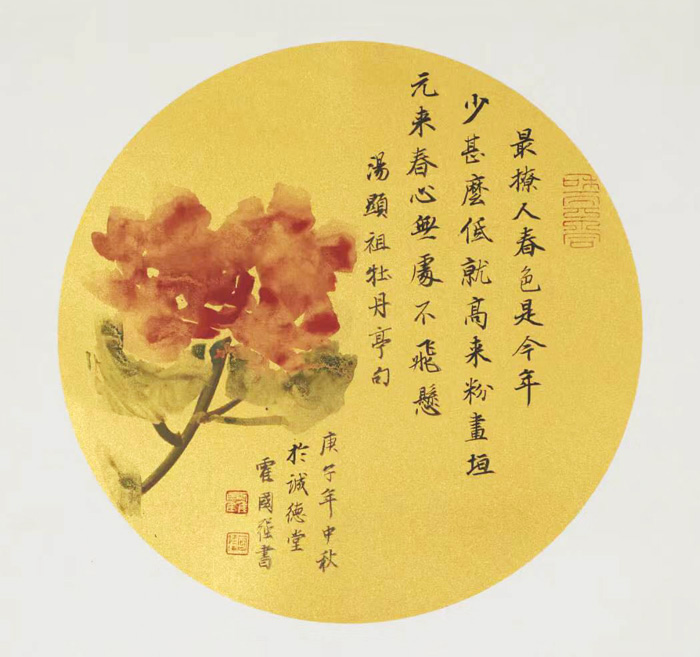 最撩人春色是今年
少甚麼低就高来粉畫垣
元来春心無處不飛懸
湯顯祖牡丹亭句
庚子年中秋
於誠德堂
霍國強書